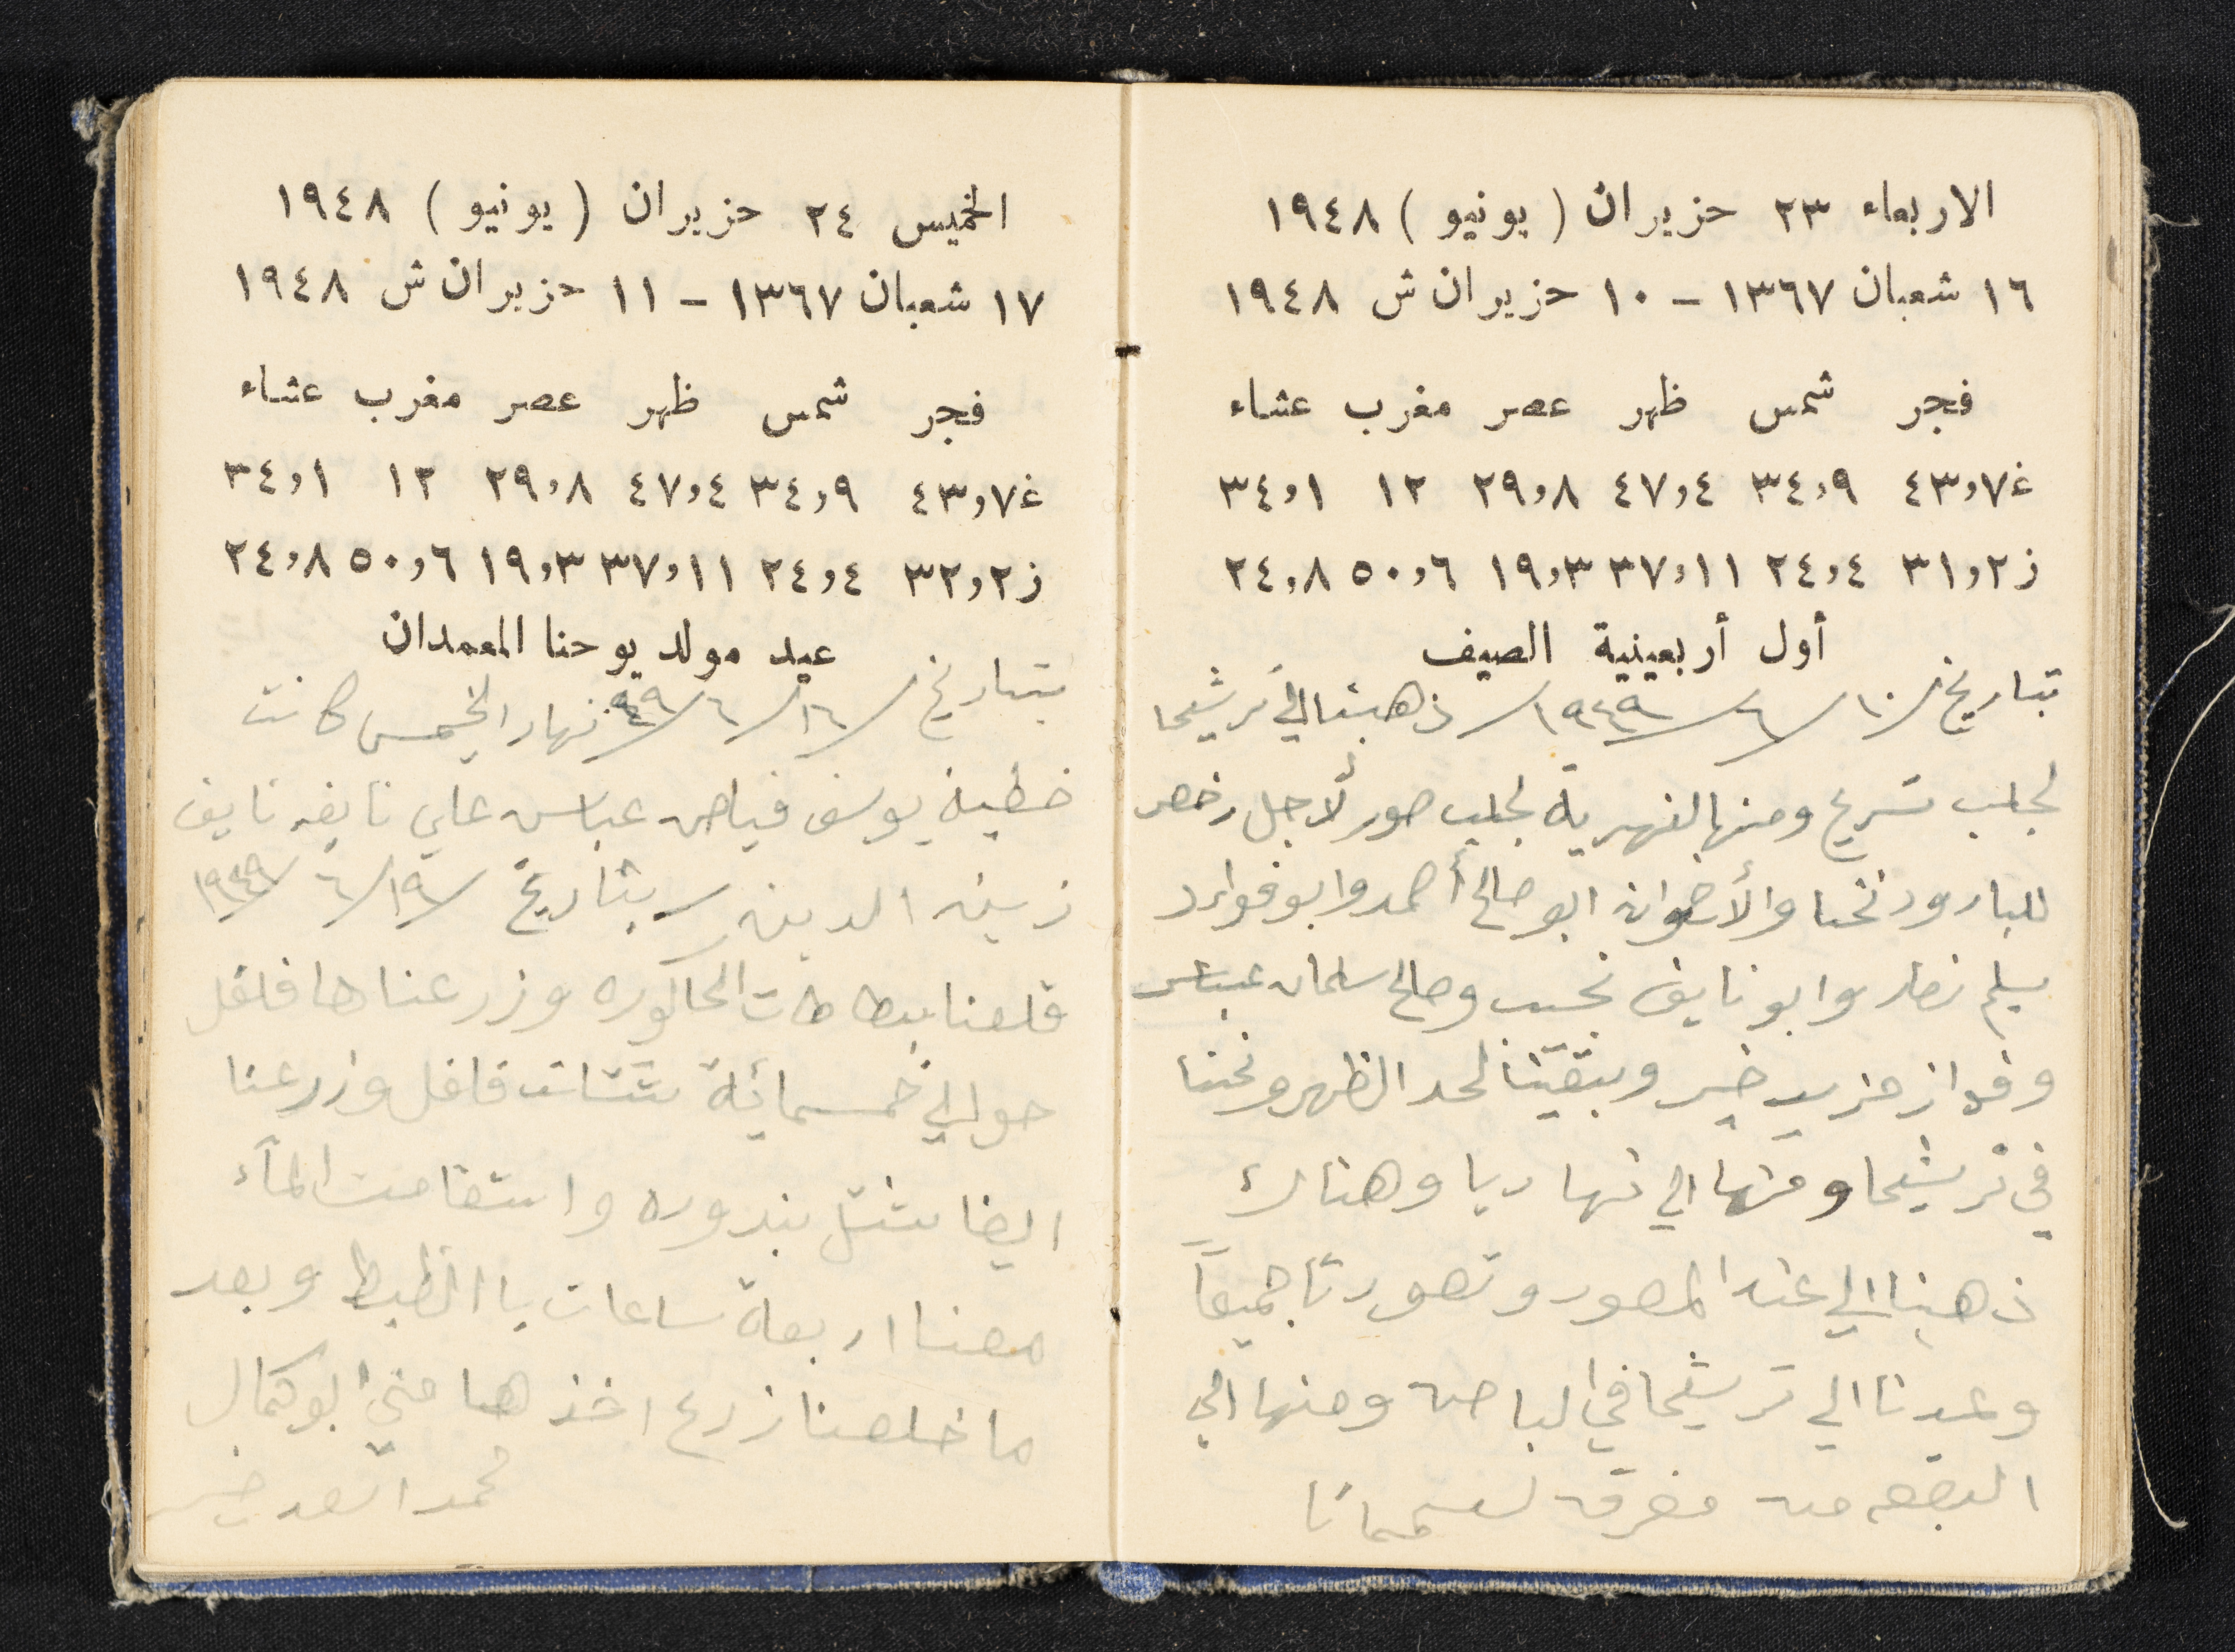 الاربعاء ٢٣ حزيران (يونيو) ١٩٤٨
١٦ شعبان ١٣٦٧ - ١٠ حزيران ش ١٩٤٨
فجر شمس ظهر عصر مغرب عشاء
غ ٤٣،٧ ٣٤،٩ ٤٧،٤ ٢٩،٨ ١٢ ٣٤،١
ز ٣١،٢ ٢٤،٤ ٣٧،١١ ١٩،٣ ٥٠،٦ ٢٤،٨
أول أربعينية الصيف
بتاريخ ١٠/٦/١٩٤٩/ ذهبنا الى ترشيحا
لجلب تسريح ومنها لنهرية لجلب صور لأجل رخص
للبارود نحنا والأخوان ابو صالح أحمد وابو فواد
سليم نصار وابو نايف نجيب وصالح سلمان عباس
وفواز مزيد خير وبتقينا لحد الظهر ونحنا
في ترشيحا ومنها الى نهاريا وهناك
ذهبنا الى عند المصور وتصورنا جميعاً
وعدنا الى ترشيحا في الباص ومنها الى
البقيعه من مفرق
الخميس ٢٤ حزيران (يونيو) ١٩٤٨
١٧ شعبان ١٣٦٧ - ١١ حزيران ش ١٩٤٨
فجر شمس ظهر عصر مغرب عشاء
غ ٤٣،٧ ٣٤،٩ ٤٧،٤ ٢٩،٨ ١٢ ٣٤،١
ز ٣٢،٢ ٢٤،٤ ٣٧،١١ ١٩،٣ ٥٠،٦ ٢٤،٨
عيد مولد يوحنا المعمدان
بتاريخ /١٦/٦/٤٩ نهار الخميس كانت
خطبة يوسف فياض عباس علي نايفه نايف
زين الدين / بتاريخ /١٩/٦/١٩٤٩
قلعنا بطاطات الحاكوره وزرعناها فلفل
حوالي خمسمائة شتلة فلفل وزرعنا
ايضا شتل بندوره واستقامت المآء
معنا اربعة ساعات باالظبط وبعد
ما خلصنا زرع اخذها مني ابو كمال
محمد اسعد خير